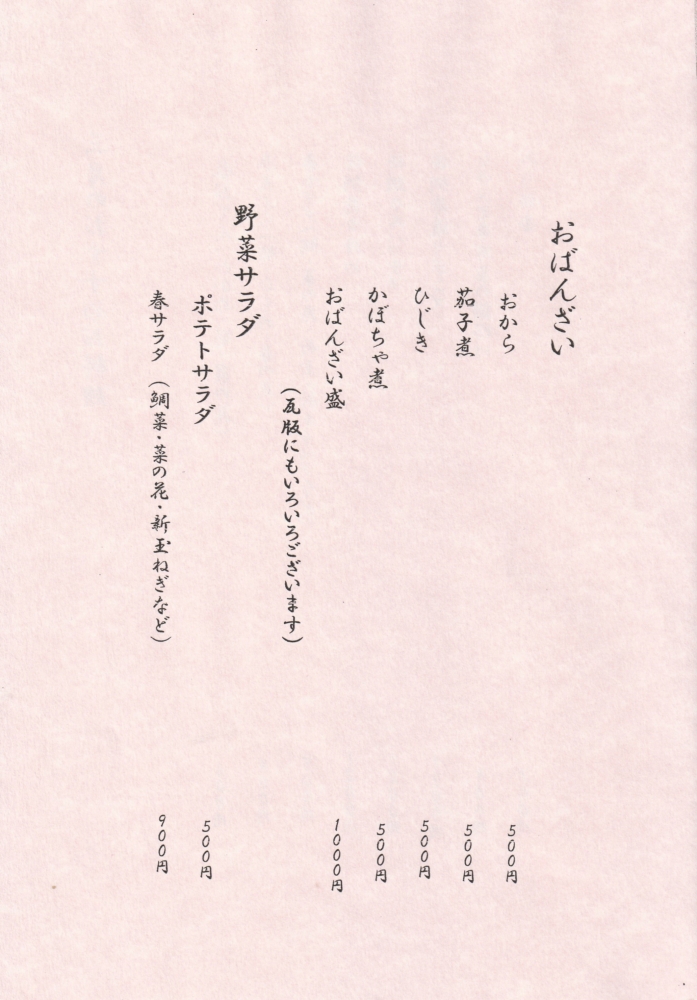 おばんざい
おから 500円
茄子煮 500円
ひじき 500円
かぼちゃ煮 500円
おばんざい盛 1000円
(瓦版にもいろいろございます)
野菜サラダ
ポテトサラダ 500円
春サラダ (鯛菜・菜の花・新玉ねぎなど) 900円